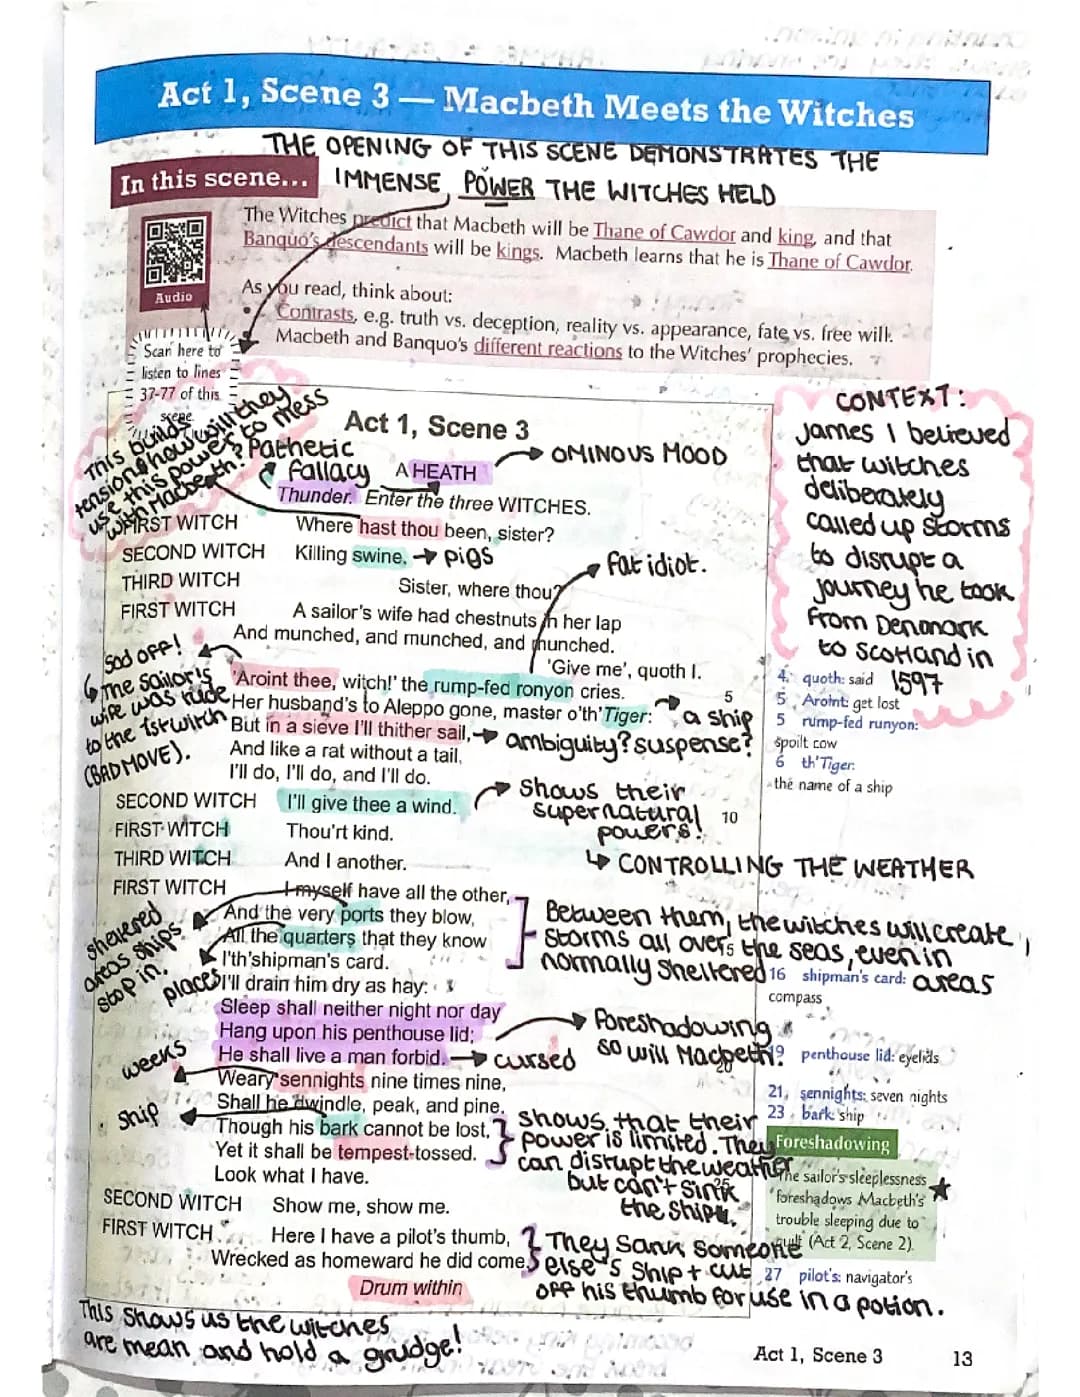 Act 1, Scene 3 — Macbeth Meets the Witches
THE OPENING OF THIS SCENE DEMONSTRATES THE
IMMENSE POWER THE WITCHES HELD
In this scene...
The Witches predict that Macbeth will be Thane of Cawdor and king, and that
Banquo's descendants will be kings. Macbeth learns that he is Thane of Cawdor.
Audio
As you read, think about:
• Contrasts, e.g. truth vs. deception, reality vs. appearance, fate vs. free will.
Macbeth and Banquo's different reactions to the Witches' prophecies.
Scan here to
listen to lines
37-77 of this
scene.
This builds
tension how will they
use this power to mess
with Macbeth?
CONTEXT:
James I believed
that witches
deliberately
called up storms
to disrupt a
journey he took
from Denmark
to Scotland in
1597
Act 1, Scene 3
Pathetic
fallacy
A HEATH
→ OMINOUS MOOD
Thunder. Enter the three WITCHES.
FIRST WITCH Where hast thou been, sister?
SECOND WITCH Killing swine. → pigs
fat idiot.
THIRD WITCH Sister, where thou?
FIRST WITCH A sailor's wife had chestnuts in her lap
And munched, and munched, and munched.
'Give me', quoth I.
Sod off!
'Aroint thee, witch!' the rump-fed ronyon cries. 5
Her husband's to Aleppo gone, master o'th'Tiger: a ship
But in a sieve I'll thither sail, → ambiguity? suspense?
And like a rat without a tail,
I'll do, I'll do, and I'll do.
↳ the sailor's
wife was rude
to the 1st witch
(BAD MOVE).
4 quoth: said
5 Aroint: get lost
5 rump-fed runyon:
spoilt cow
6 th'Tiger:
the name of a ship
SECOND WITCH I'll give thee a wind.
→ Shows their
supernatural
powers!
10
FIRST WITCH Thou'rt kind.
THIRD WITCH And I another.
↳ CONTROLLING THE WEATHER
FIRST WITCH I myself have all the other,
And the very ports they blow,
All the quarters that they know
I'th'shipman's card.
I'll drain him dry as hay:
Sleep shall neither night nor day
Hang upon his penthouse lid;
He shall live a man forbid. → cursed
Weary sennights nine times nine,
Shall he dwindle, peak, and pine.
Though his bark cannot be lost,
Yet it shall be tempest-tossed.
Look what I have.
shevered
areas ships
stop in.
places
Between them, the witches will create
storms all over the seas, even in
normally sheltered areas
16 shipman's card:
compass
Foreshadowing
so will Macbeth!
20
19 penthouse lid: eyelids
weeks
ship
21 sennights: seven nights
23 bark: ship
shows that their
power is limited. They
can disrupt the weather
but can't sink
the ship.
25
Foreshadowing
The sailor's sleeplessness
foreshadows Macbeth's
trouble sleeping due to
guilt (Act 2, Scene 2).
SECOND WITCH Show me, show me.
FIRST WITCH Here I have a pilot's thumb,
Wrecked as homeward he did come.
Drum within
They sank someone
else's ship + cut
off his thumb for use in a potion.
27 pilot's: navigator's
This shows us the witches
are mean and hold a grudge!
Act 1, Scene 3 13